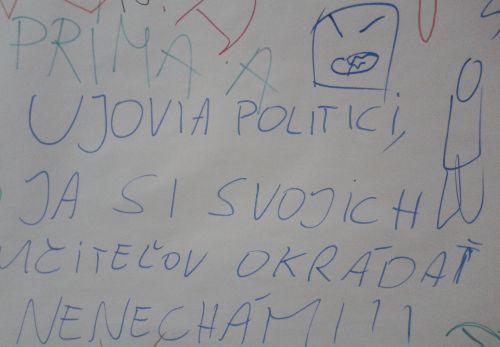 PRIMA A
UJOVIA POLITICI,
JA SI SVOJICH
UČITEĽOV OKRÁDAŤ
NENECHÁM!!!